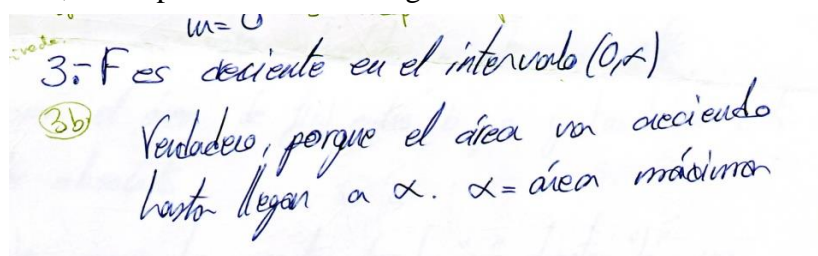 m=0
3.- F es creciente en el intervalo (0,α)
3b)
Verdadero, porque el área va creciendo
hasta llegar a α. α = área máxima